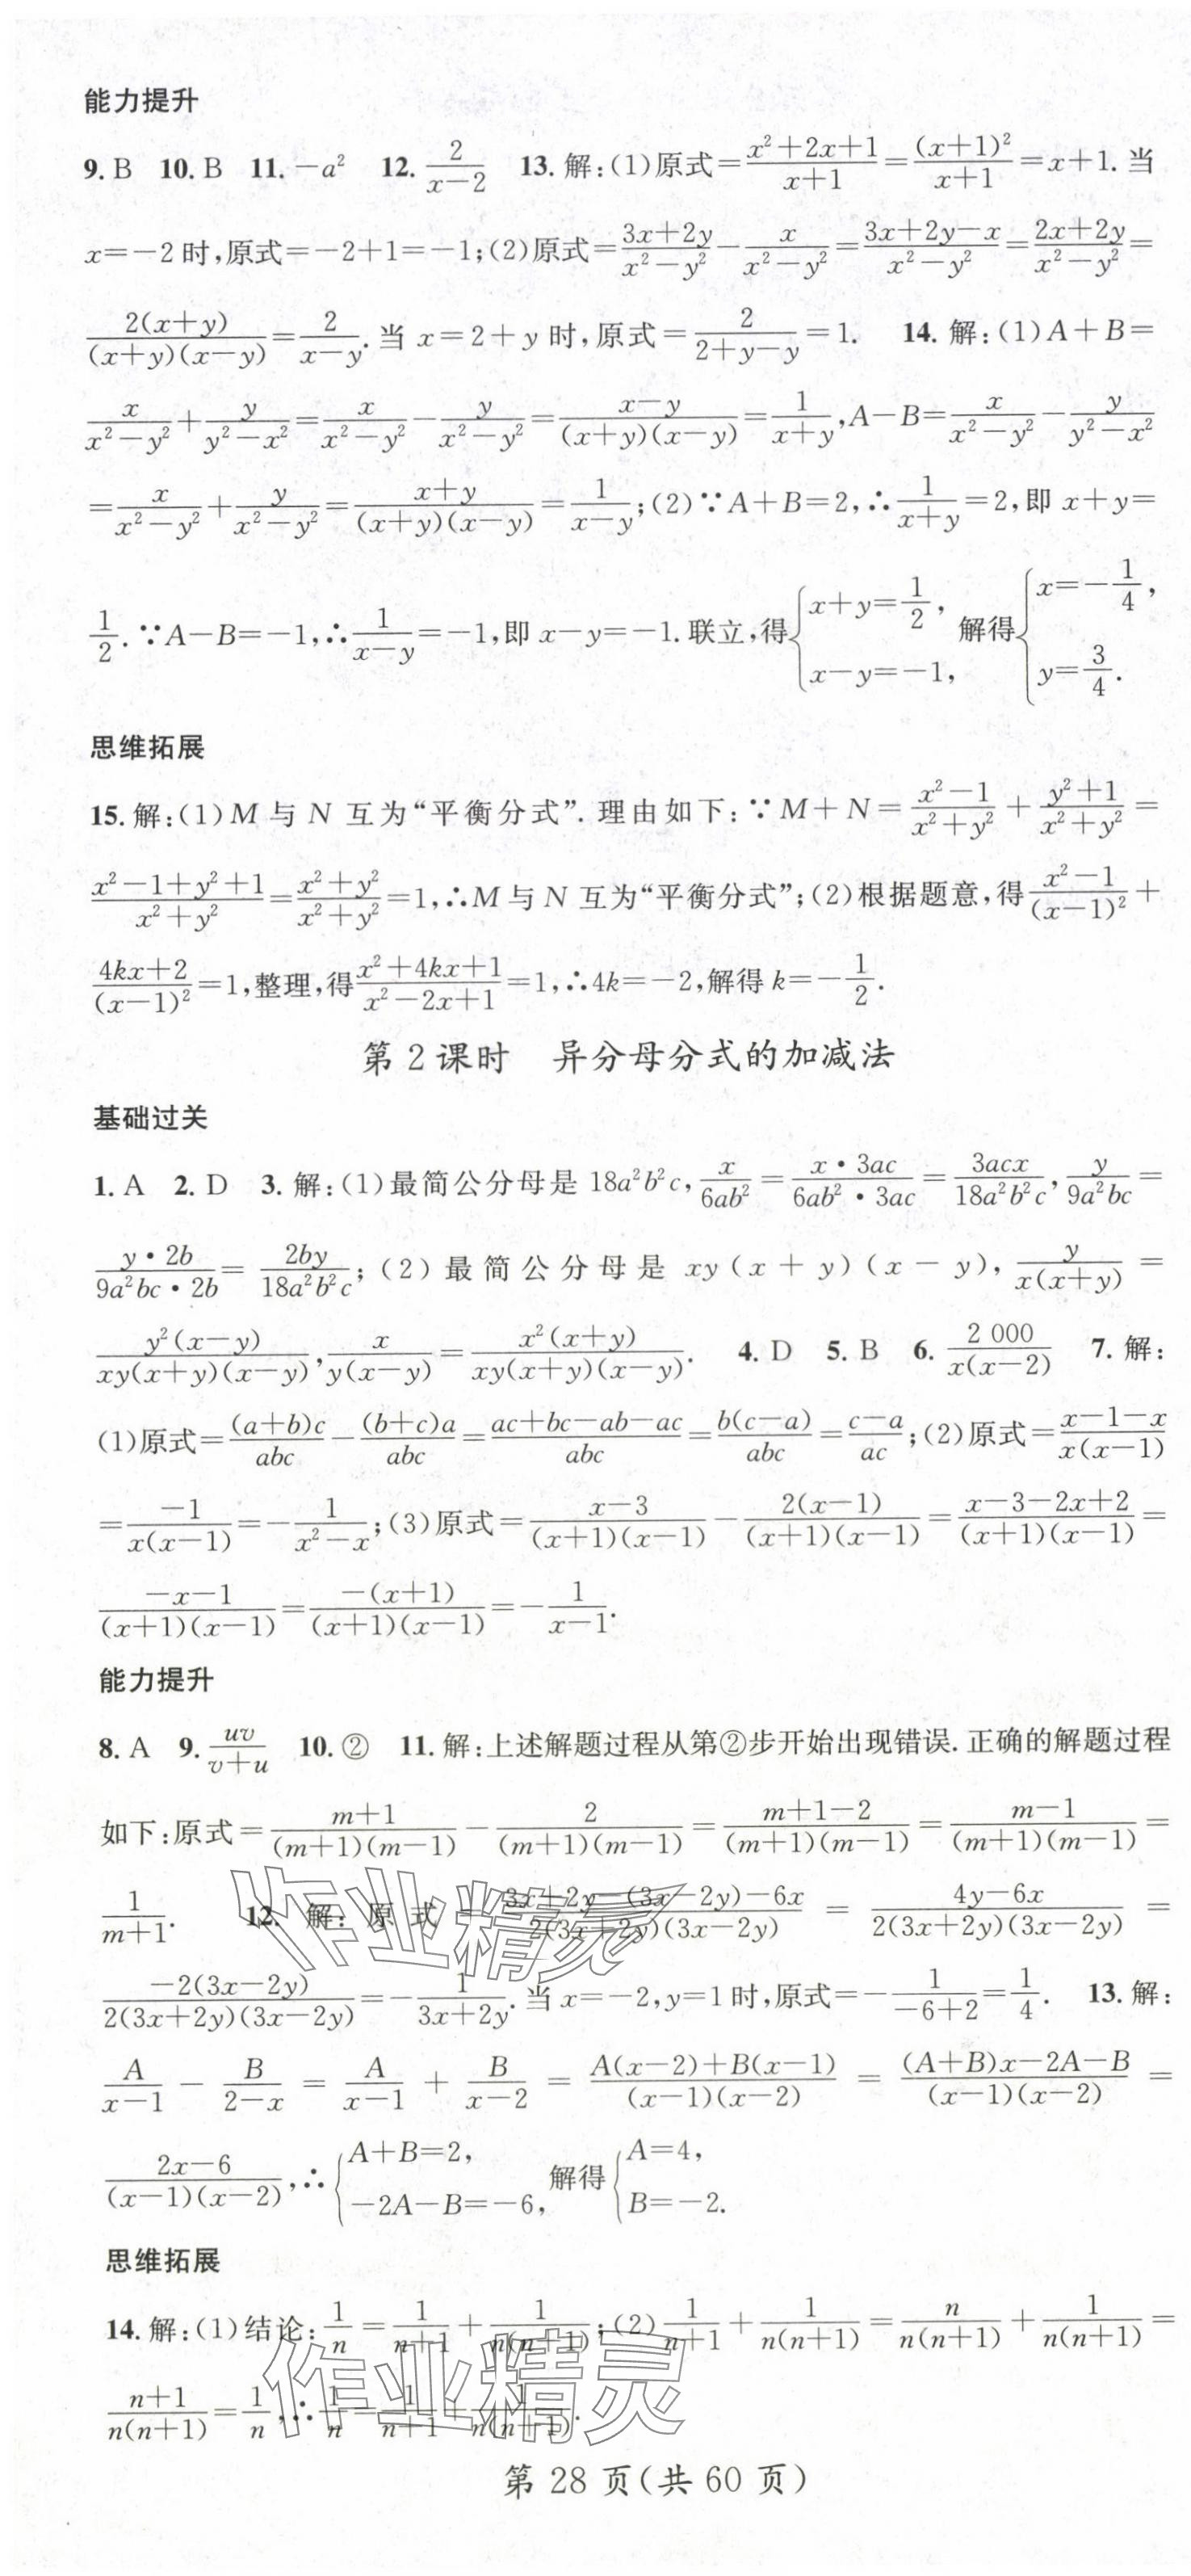 能力提升
9. B  10. B  11. −a²  12. 2/(x−2)  13. 解:(1)原式=(x²+2x+1)/(x+1)=(x+1)²/(x+1)=x+1. 当
x=−2时,原式=−2+1=−1;(2)原式=(3x+2y)/(x²−y²)−x/(x²−y²)=(3x+2y−x)/(x²−y²)=(2x+2y)/(x²−y²)=
2(x+y)/((x+y)(x−y))=2/(x−y). 当 x=2+y 时,原式=2/(2+y−y)=1.  14. 解:(1)A+B=
x/(x²−y²)+y/(y²−x²)=x/(x²−y²)−y/(x²−y²)=(x−y)/((x+y)(x−y))=1/(x+y),A−B=x/(x²−y²)−y/(y²−x²)
=x/(x²−y²)+y/(x²−y²)=(x+y)/((x+y)(x−y))=1/(x−y);(2)∵A+B=2,∴1/(x+y)=2,即 x+y=
1/2. ∵A−B=−1,∴1/(x−y)=−1,即 x−y=−1. 联立,得{x+y=1/2, x−y=−1, 解得{x=−1/4, y=3/4.
思维拓展
15. 解:(1)M 与 N 互为“平衡分式”. 理由如下:∵M+N=(x²−1)/(x²+y²)+(y²+1)/(x²+y²)=
(x²−1+y²+1)/(x²+y²)=(x²+y²)/(x²+y²)=1,∴M 与 N 互为“平衡分式”;(2)根据题意,得(x²−1)/(x−1)²+
(4kx+2)/(x−1)²=1,整理,得(x²+4kx+1)/(x²−2x+1)=1,∴4k=−2,解得 k=−1/2.
第 2 课时 异分母分式的加减法
基础过关
1. A  2. D  3. 解:(1)最简公分母是 18a²b²c,x/(6ab²)=(x·3ac)/(6ab²·3ac)=3acx/(18a²b²c),y/(9a²bc)=
(y·2b)/(9a²bc·2b)=2by/(18a²b²c);(2)最简公分母是 xy(x+y)(x−y),y/(x(x+y))=
y²(x−y)/(xy(x+y)(x−y)),x/(y(x−y))=x²(x+y)/(xy(x+y)(x−y)).  4. D  5. B  6. 2 000/(x(x−2))  7. 解:
(1)原式=(a+b)c/abc−(b+c)a/abc=(ac+bc−ab−ac)/abc=b(c−a)/abc=(c−a)/ac;(2)原式=(x−1−x)/(x(x−1))
=−1/(x(x−1))=−1/(x²−x);(3)原式=(x−3)/((x+1)(x−1))−2(x−1)/((x+1)(x−1))=(x−3−2x+2)/((x+1)(x−1))=
(−x−1)/((x+1)(x−1))=−(x+1)/((x+1)(x−1))=−1/(x−1).
能力提升
8. A  9. uv/(v+u)  10. ②  11. 解:上述解题过程从第②步开始出现错误. 正确的解题过程
如下:原式=(m+1)/((m+1)(m−1))−2/((m+1)(m−1))=(m+1−2)/((m+1)(m−1))=(m−1)/((m+1)(m−1))=
1/(m+1).  12. 解:原式=(3x+2y−(3x−2y)−6x)/(2(3x+2y)(3x−2y))=(4y−6x)/(2(3x+2y)(3x−2y))=
−2(3x−2y)/(2(3x+2y)(3x−2y))=−1/(3x+2y). 当 x=−2,y=1时,原式=−1/(−6+2)=1/4.  13. 解:
A/(x−1)−B/(2−x)=A/(x−1)+B/(x−2)=(A(x−2)+B(x−1))/((x−1)(x−2))=((A+B)x−2A−B)/((x−1)(x−2))=
(2x−6)/((x−1)(x−2)),∴{A+B=2, −2A−B=−6, 解得{A=4, B=−2.
思维拓展
14. 解:(1)结论:1/n=1/(n+1)+1/(n(n+1));(2)1/(n+1)+1/(n(n+1))=n/(n(n+1))+1/(n(n+1))=
(n+1)/(n(n+1))=1/n,∴1/n=1/(n+1)+1/(n(n+1)).
第 28 页(共 60 页)
作业精灵
作业精灵